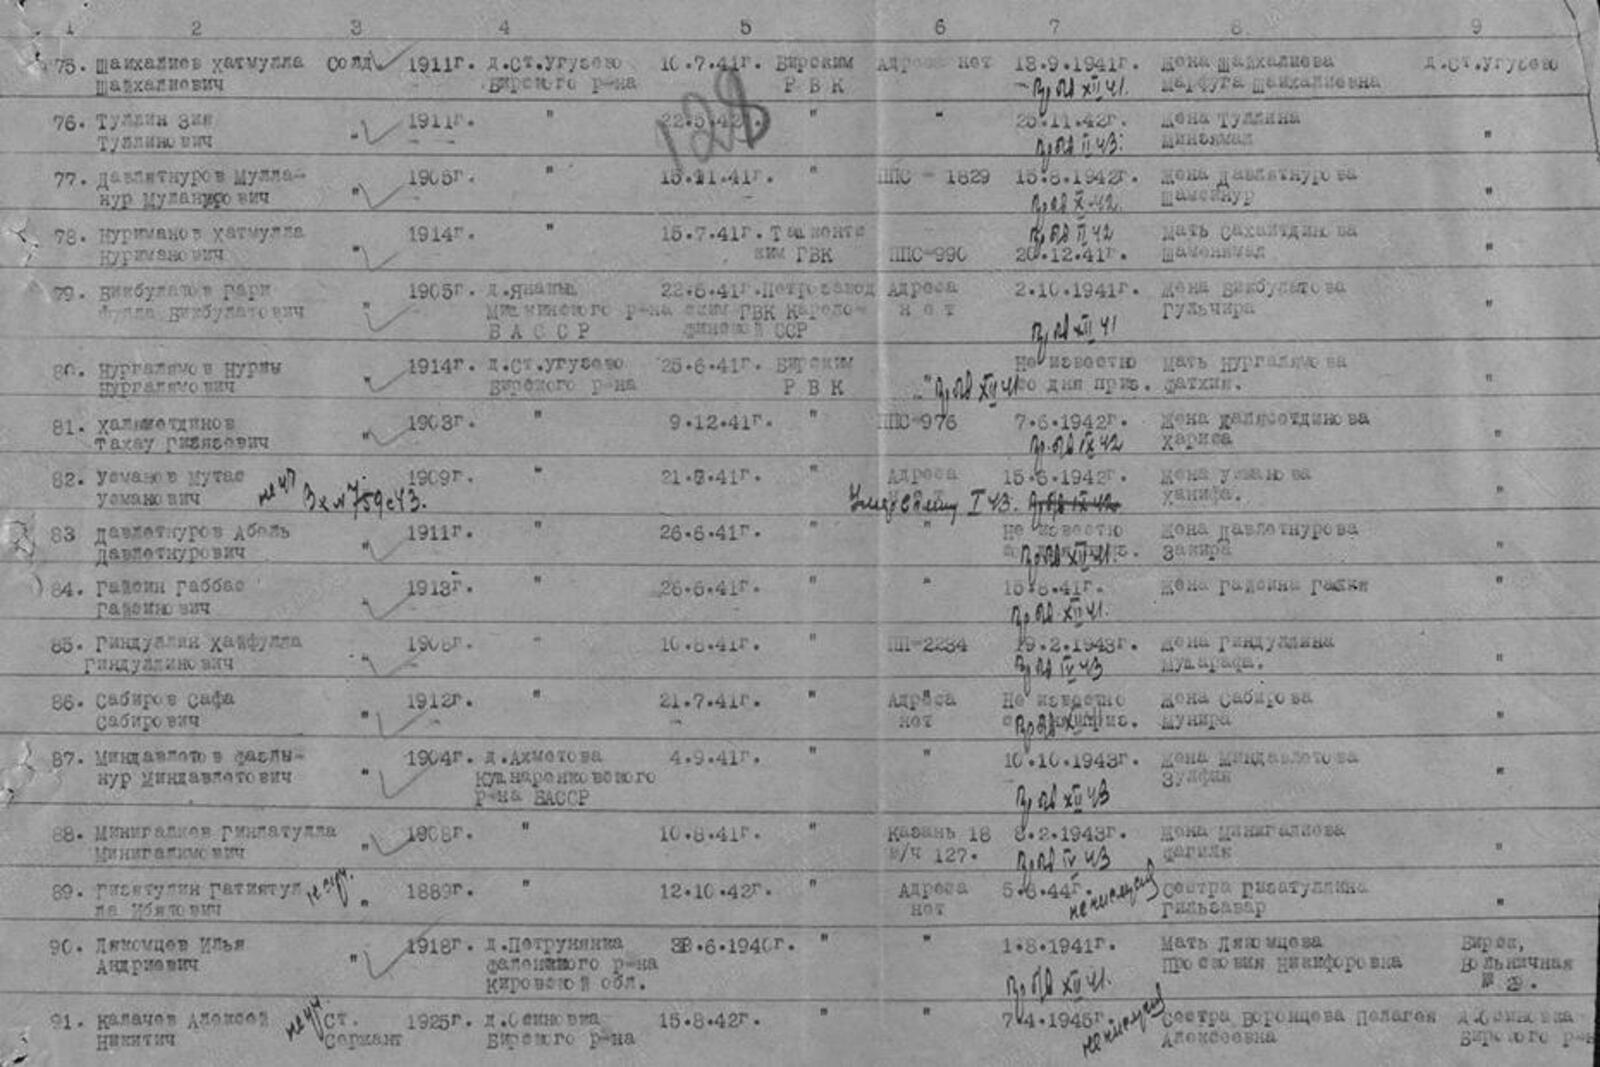 1 2 3 4 5 6 7 8 9
75. Шайхалиев Хатмулла солд. 1911г. д.Ст.Угузево 10.7.41г. Бирским Адреса нет 18.9.1941г. Жена Шайхалиева д.Ст.Угузево
Шайхалиевич Бирского р-на Р В К XII 41. Марфуга Шайхалиевна
128
76. Туллин Зия " 1911г. " 22.5.42г. " " 25.11.42г. Жена Туллина "
Туллинович II 43. Минзямал
77. Давлетнуров Мулла- " 1905г. " 15.11.41г. " ППС - 1829 15.8.1942г. Жена Давлетнурова "
нур Муланурович X 42. Шамсинур
78. Нуриманов Хатмулла " 1914г. " 15.7.41г. Ташкентс II 42 Мать Сахаитдинова "
Нуриманович ким ГВК ППС-990 20.12.41г.
79. Бикбулатов Гари " 1905г. д.Янаиш 22.6.41г. Петрозавод Адреса 2.10.1941г. Жена Бикбулатова "
фулла Бикбулатович Мишкинского р-на ским ГВК Карело- нет Гульчира
Б А С С Р финской ССР XII 41
80. Нургалямов Нурлы " 1914г. д.Ст.Угузево 25.6.41г. Бирским " Не известно Мать Нургалямова "
Нургалямович Бирского р-на Р В К XII 41 со дня приз. Фатхия.
81. " 1903г. " 9.12.41г. " ППС-976 7.6.1942г. Жена "
Тахау Гилязевич IX 42 Хариса
82. Усманов Мутас не уч 1909г. " 21.7.41г. " Адреса 15.6.1942г. Жена Усманова "
Усманович Вх № 759с 43. I 43. Ханифа.
83 Давлетнуров Абель " 1911г. " 26.6.41г. " " Не известно Жена Давлетнурова "
Давлетнурович XII 41. Закира
84. Гайсин Габбас " 1913г. " 26.6.41г. " 15.8.41г. Жена Гайсина Галия "
Гайсинович XII 41.
85. Гиндуллин Хайфулла " 1908г. " 10.8.41г. " ПП-2234 19.2.1943г. Жена Гиндуллина "
Гиндуллинович IV 43 Мушарафа.
86. Сабиров Сафа " 1912г. " 21.7.41г. " Адреса Не известно Жена Сабирова "
Сабирович нет Мунира
87. Миндавлетов Фазлы- " 1904г. д.Ахметова 4.9.41г. " " 10.10.1943г. Жена Миндавлетова "
нур Миндавлетович Кушнаренковского Зулфия
р-на БАССР XII 43
88. Минигалиев Гиниатулла " 1908г. " 10.8.41г. " Казань 18 8.2.1943г. Жена Минигалиева "
Минигалимович в/ч 127. IV 43 Фагиля
89. Гизятулин Гатиятул не уч. " 1889г. " 12.10.42г. " Адреса 5.6.44г. Сестра Гизатуллина "
ла Ибятович нет не числится Гильзавар
90. Лякомцев Илья " 1918г. д.Петрунинка .6.1940г. " " 1.8.1941г. Мать Лякомцева Бирск,
Андриевич Фаленкого р-на XII 41. Просковия Никифоровна Больничная
Кировской обл. № 29.
91. Калачев Алексей не уч. Ст. 1925г. д.Осиновка 15.8.42г. " " 7.4.1945г. Сестра Воронцева Пелагея д.Осиновка
Никитич Сержант Бирского р-на не числится Алексеевна Бирского р-н